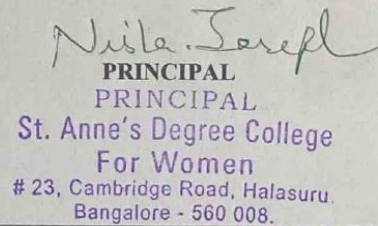 PRINCIPAL
PRINCIPAL
St. Anne's Degree College
For Women
# 23, Cambridge Road, Halasuru,
Bangalore - 560 008.